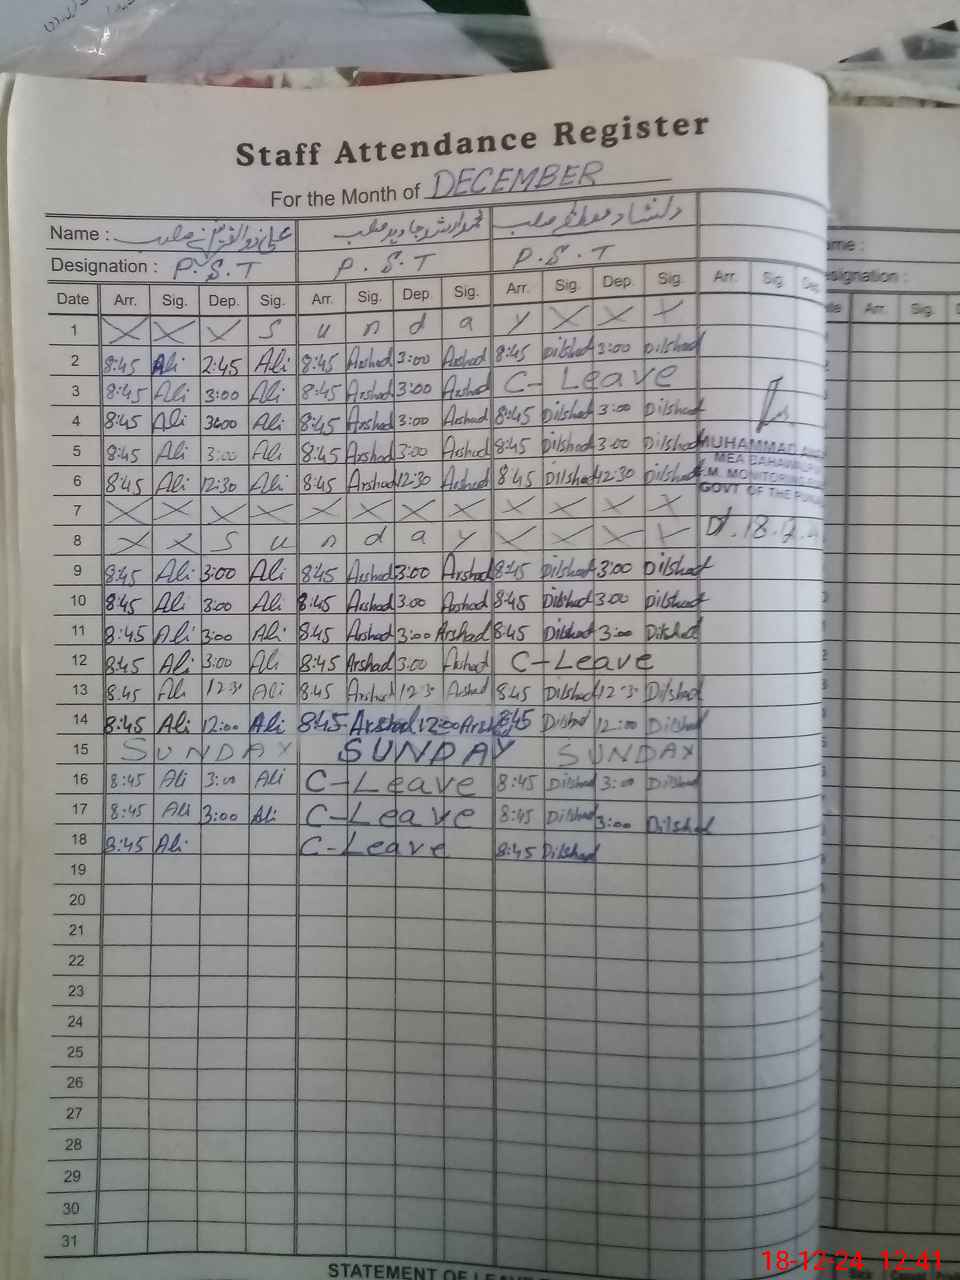 Staff Attendance Register
For the Month of DECEMBER
Name :
Designation : P.S.T P.S.T P.S.T
Date Arr. Sig. Dep. Sig. Arr. Sig. Dep. Sig. Arr. Sig. Dep. Sig. Arr. Sig.
1 X X X S u n d a y X X X
2 8:45 Ali 2:45 Ali 8:45 Arshad 3:00 Arshad 8:45 Dilshad 3:00 Dilshad
3 8:45 Ali 3:00 Ali 8:45 Arshad 3:00 Arshad C- Leave
4 8:45 Ali 3:00 Ali 8:45 Arshad 3:00 Arshad 8:45 Dilshad 3:00 Dilshad
5 8:45 Ali 3:00 Ali 8:45 Arshad 3:00 Arshad 8:45 Dilshad 3:00 Dilshad
MUHAMMAD
MEA BAHAWALPUR
MONITORING
GOVT OF THE PUNJAB
6 8:45 Ali 12:30 Ali 8:45 Arshad 12:30 Arshad 8:45 Dilshad 12:30 Dilshad
7 X X X X X X X X X X X X
8 X X S u n d a y X X X X
9 8:45 Ali 3:00 Ali 8:45 Arshad 3:00 Arshad 8:45 Dilshad 3:00 Dilshad
10 8:45 Ali 3:00 Ali 8:45 Arshad 3:00 Arshad 8:45 Dilshad 3:00 Dilshad
11 8:45 Ali 3:00 Ali 8:45 Arshad 3:00 Arshad 8:45 Dilshad 3:00 Dilshad
12 8:45 Ali 3:00 Ali 8:45 Arshad 3:00 Arshad C-Leave
13 8:45 Ali 12:3 Ali 8:45 Arshad 12:3 Arshad 8:45 Dilshad 12:3 Dilshad
14 8:45 Ali 12:00 Ali 8:45 Arshad 12:00 Arshad 8:45 Dilshad 12:00 Dilshad
15 SUNDAY SUNDAY SUNDAY
16 8:45 Ali 3:00 Ali C-Leave 8:45 Dilshad 3:00 Dilshad
17 8:45 Ali 3:00 Ali C-Leave 8:45 Dilshad 3:00 Dilshad
18 8:45 Ali C-Leave 8:45 Dilshad
19
20
21
22
23
24
25
26
27
28
29
30
31
18-12-24 12:41